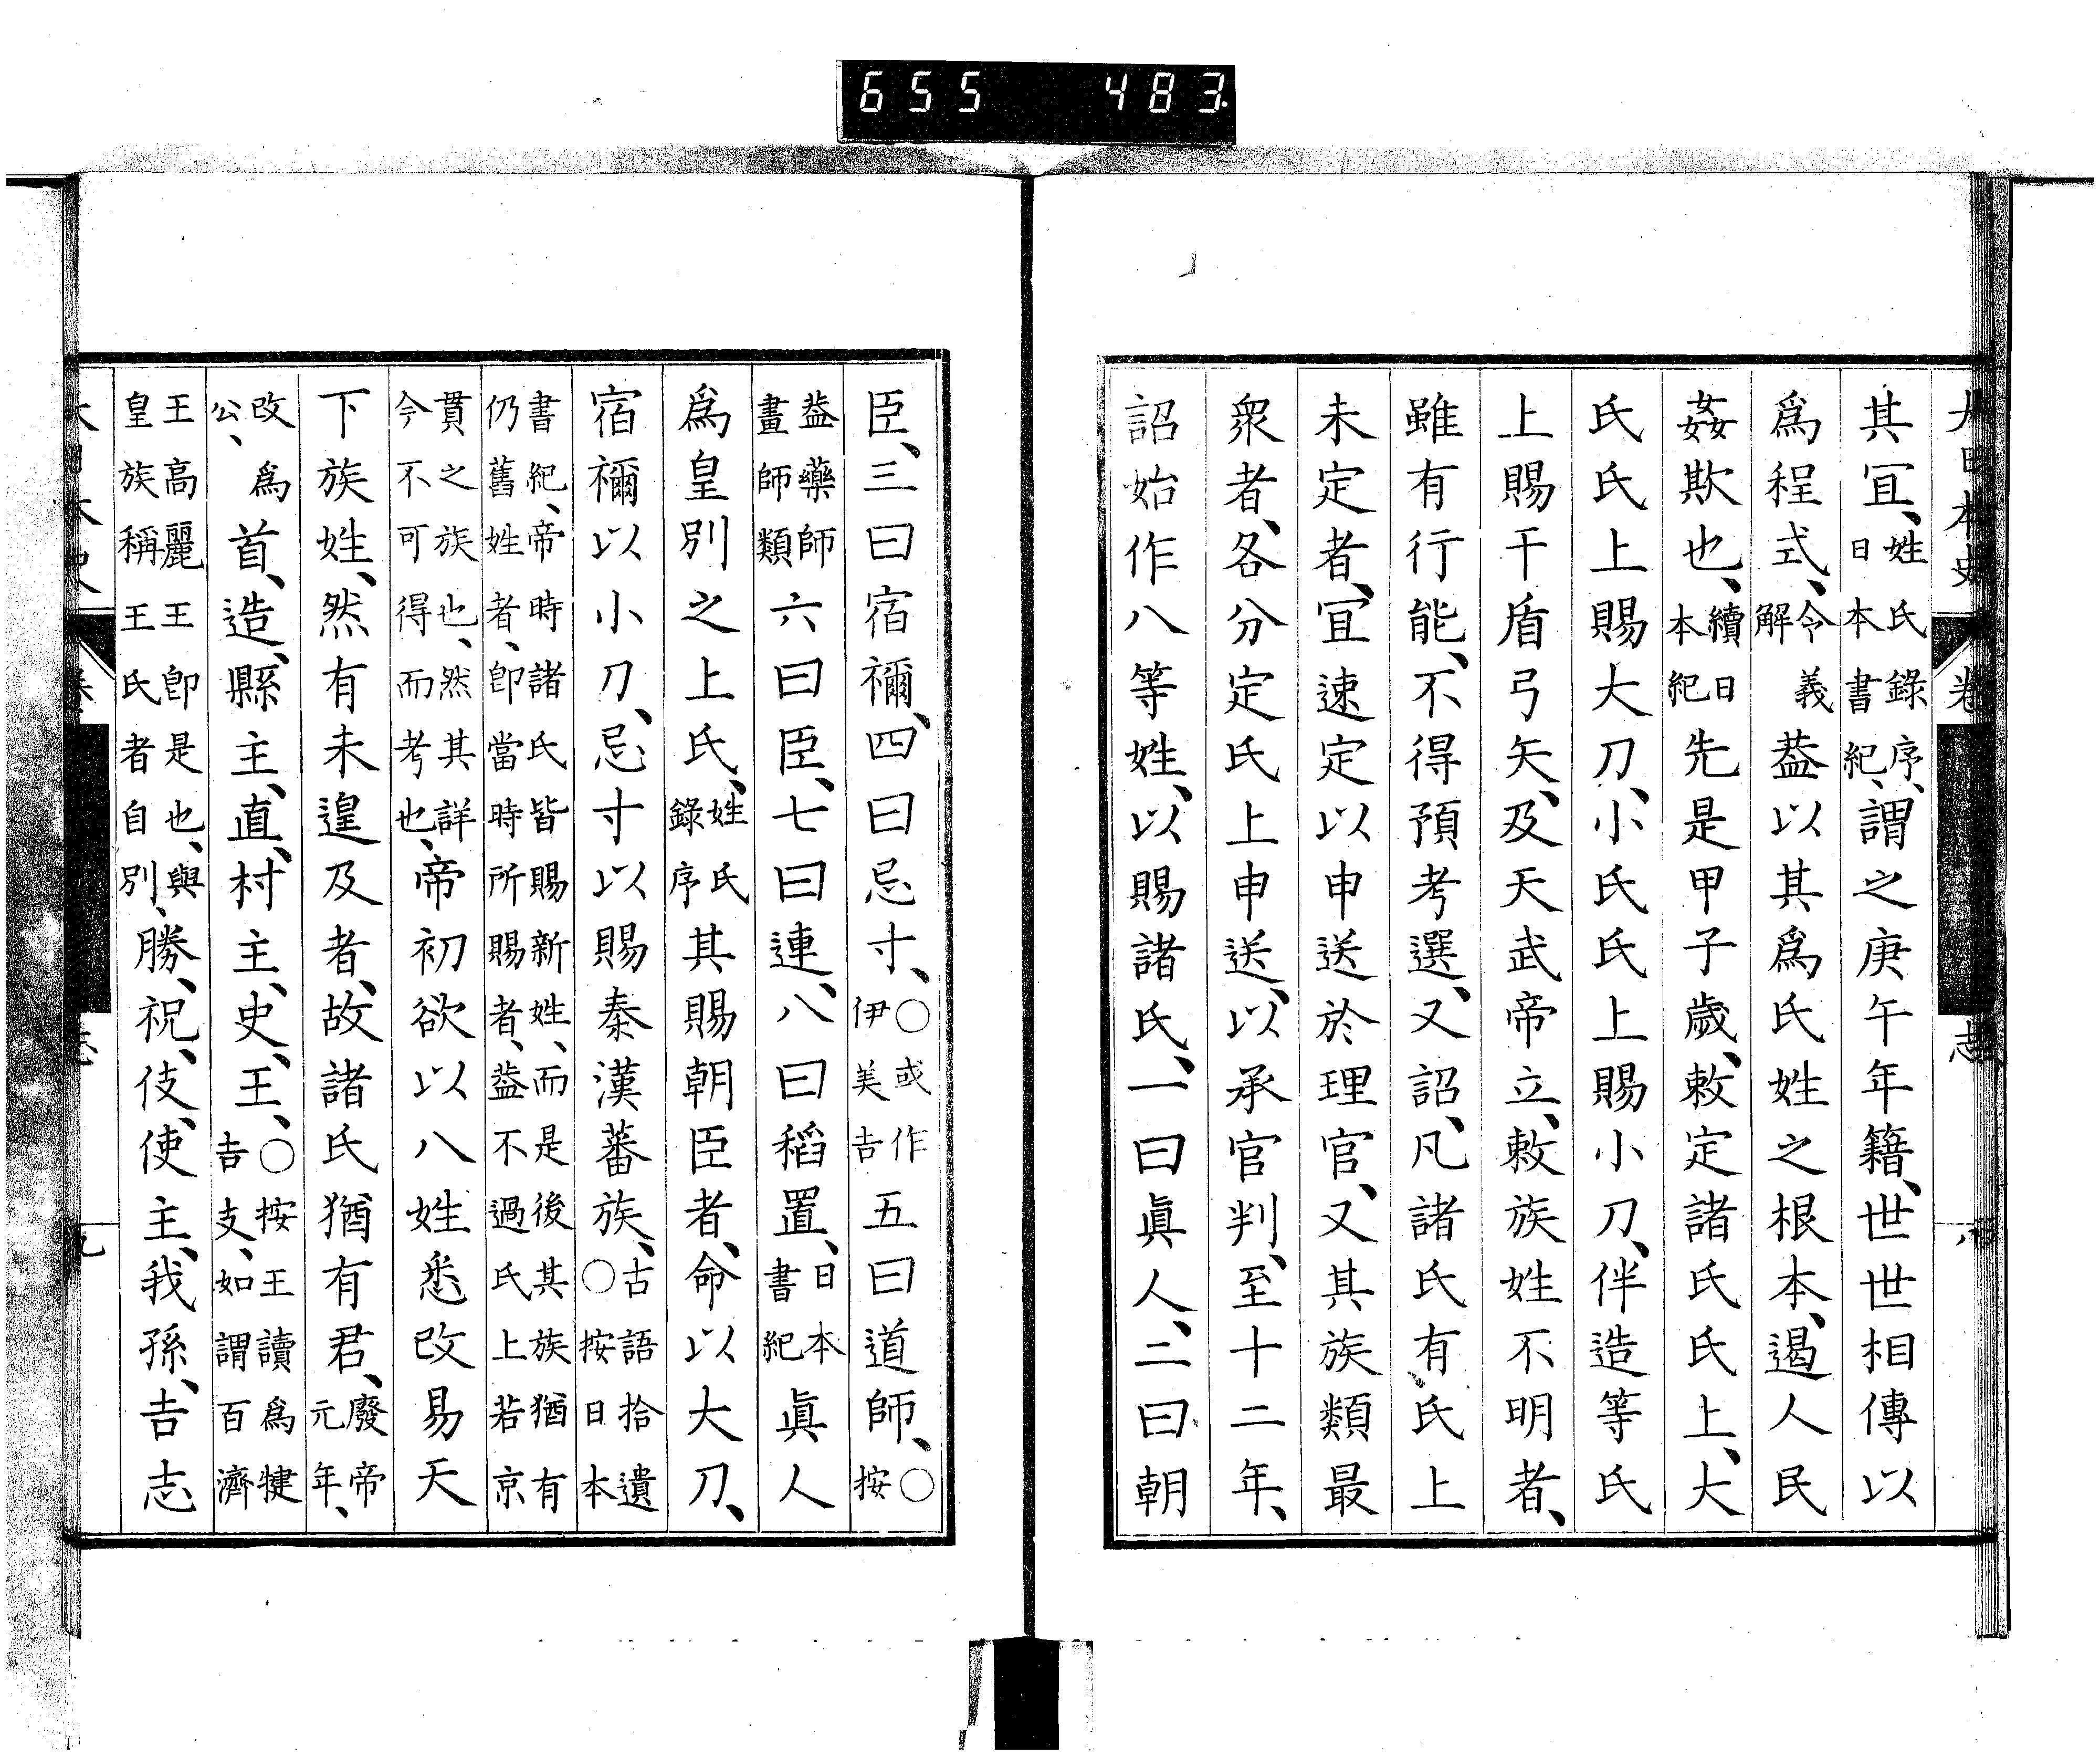 655 483
大日本史 卷 志 八
其宜、姓氏錄序、日本書紀、謂之庚午年籍、世世相傳以
爲程式、令義解蓋以其爲氏姓之根本、遏人民
姦欺也、續日本紀先是甲子歲、敕定諸氏氏上、大
氏氏上賜大刀、小氏氏上賜小刀、伴造等氏
上賜干盾弓矢、及天武帝立、敕族姓不明者、
雖有行能、不得預考選、又詔、凡諸氏有氏上
未定者、宜速定以申送於理官、又其族類最
衆者、各分定氏上申送、以承官判、至十二年、
詔始作八等姓、以賜諸氏、一曰眞人、二曰朝
臣、三曰宿禰、四曰忌寸、○或作伊美吉五曰道師、○按
蓋藥師畫師類六曰臣、七曰連、八曰稻置、日本書紀眞人
爲皇別之上氏、姓氏錄序其賜朝臣者、命以大刀、
宿禰以小刀、忌寸以賜秦漢蕃族、古語拾遺○按日本
書紀、帝時諸氏皆賜新姓、而是後其族猶有仍舊姓者、卽當時所賜者、蓋不過氏上若京
貫之族也、然其詳今不可得而考也、帝初欲以八姓悉改易天
下族姓、然有未遑及者、故諸氏猶有君、廢帝元年、
改爲公、首、造、縣主、直、村主、史、王、○按王讀爲犍吉支、如謂百濟
王高麗王卽是也、與皇族稱王氏者自別、勝、祝、伎、使主、我孫、吉志
志 九